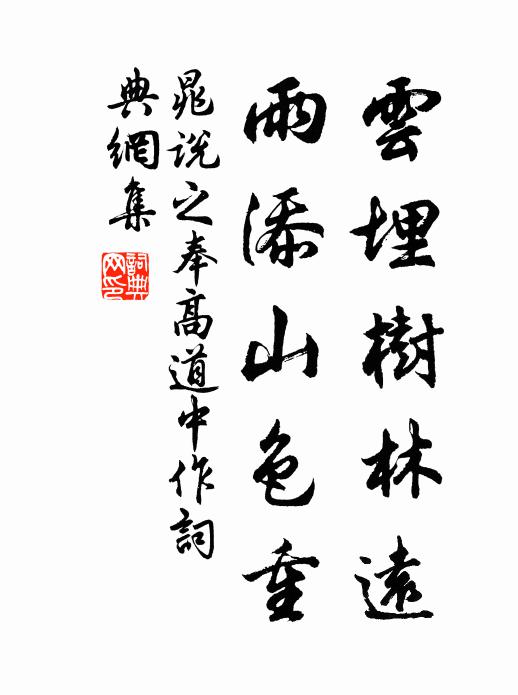 雲埋樹林遠
雨添山色重
晁说之奉高道中作詞
典網集
詞典網印